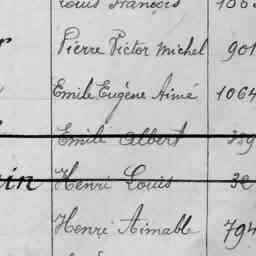 Louis François
Pierre Victor Michel 901
Emile Eugène Aimé 1064
Emile Albert
Henri Louis
Henri Aimable 794